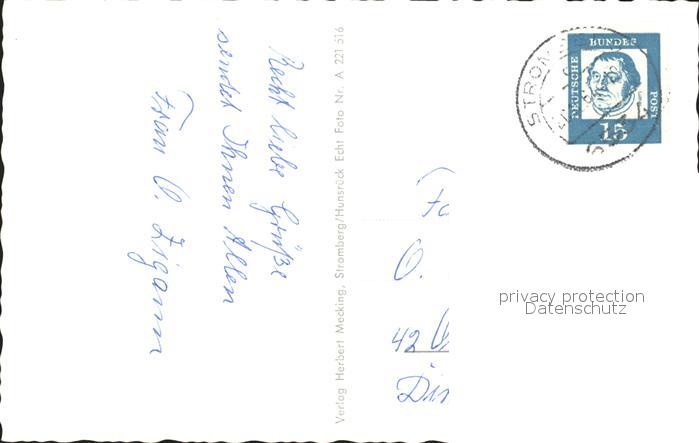 Recht liebe Grüße
sendet Ihnen Allen
Frau O. Zigann
Verlag Herbert Mecking, Stromberg/Hunsrück Echt Foto Nr. A 221 516
STROM
DEUTSCHE
BUNDES
POST
15
O.
42
privacy protection
Datenschutz